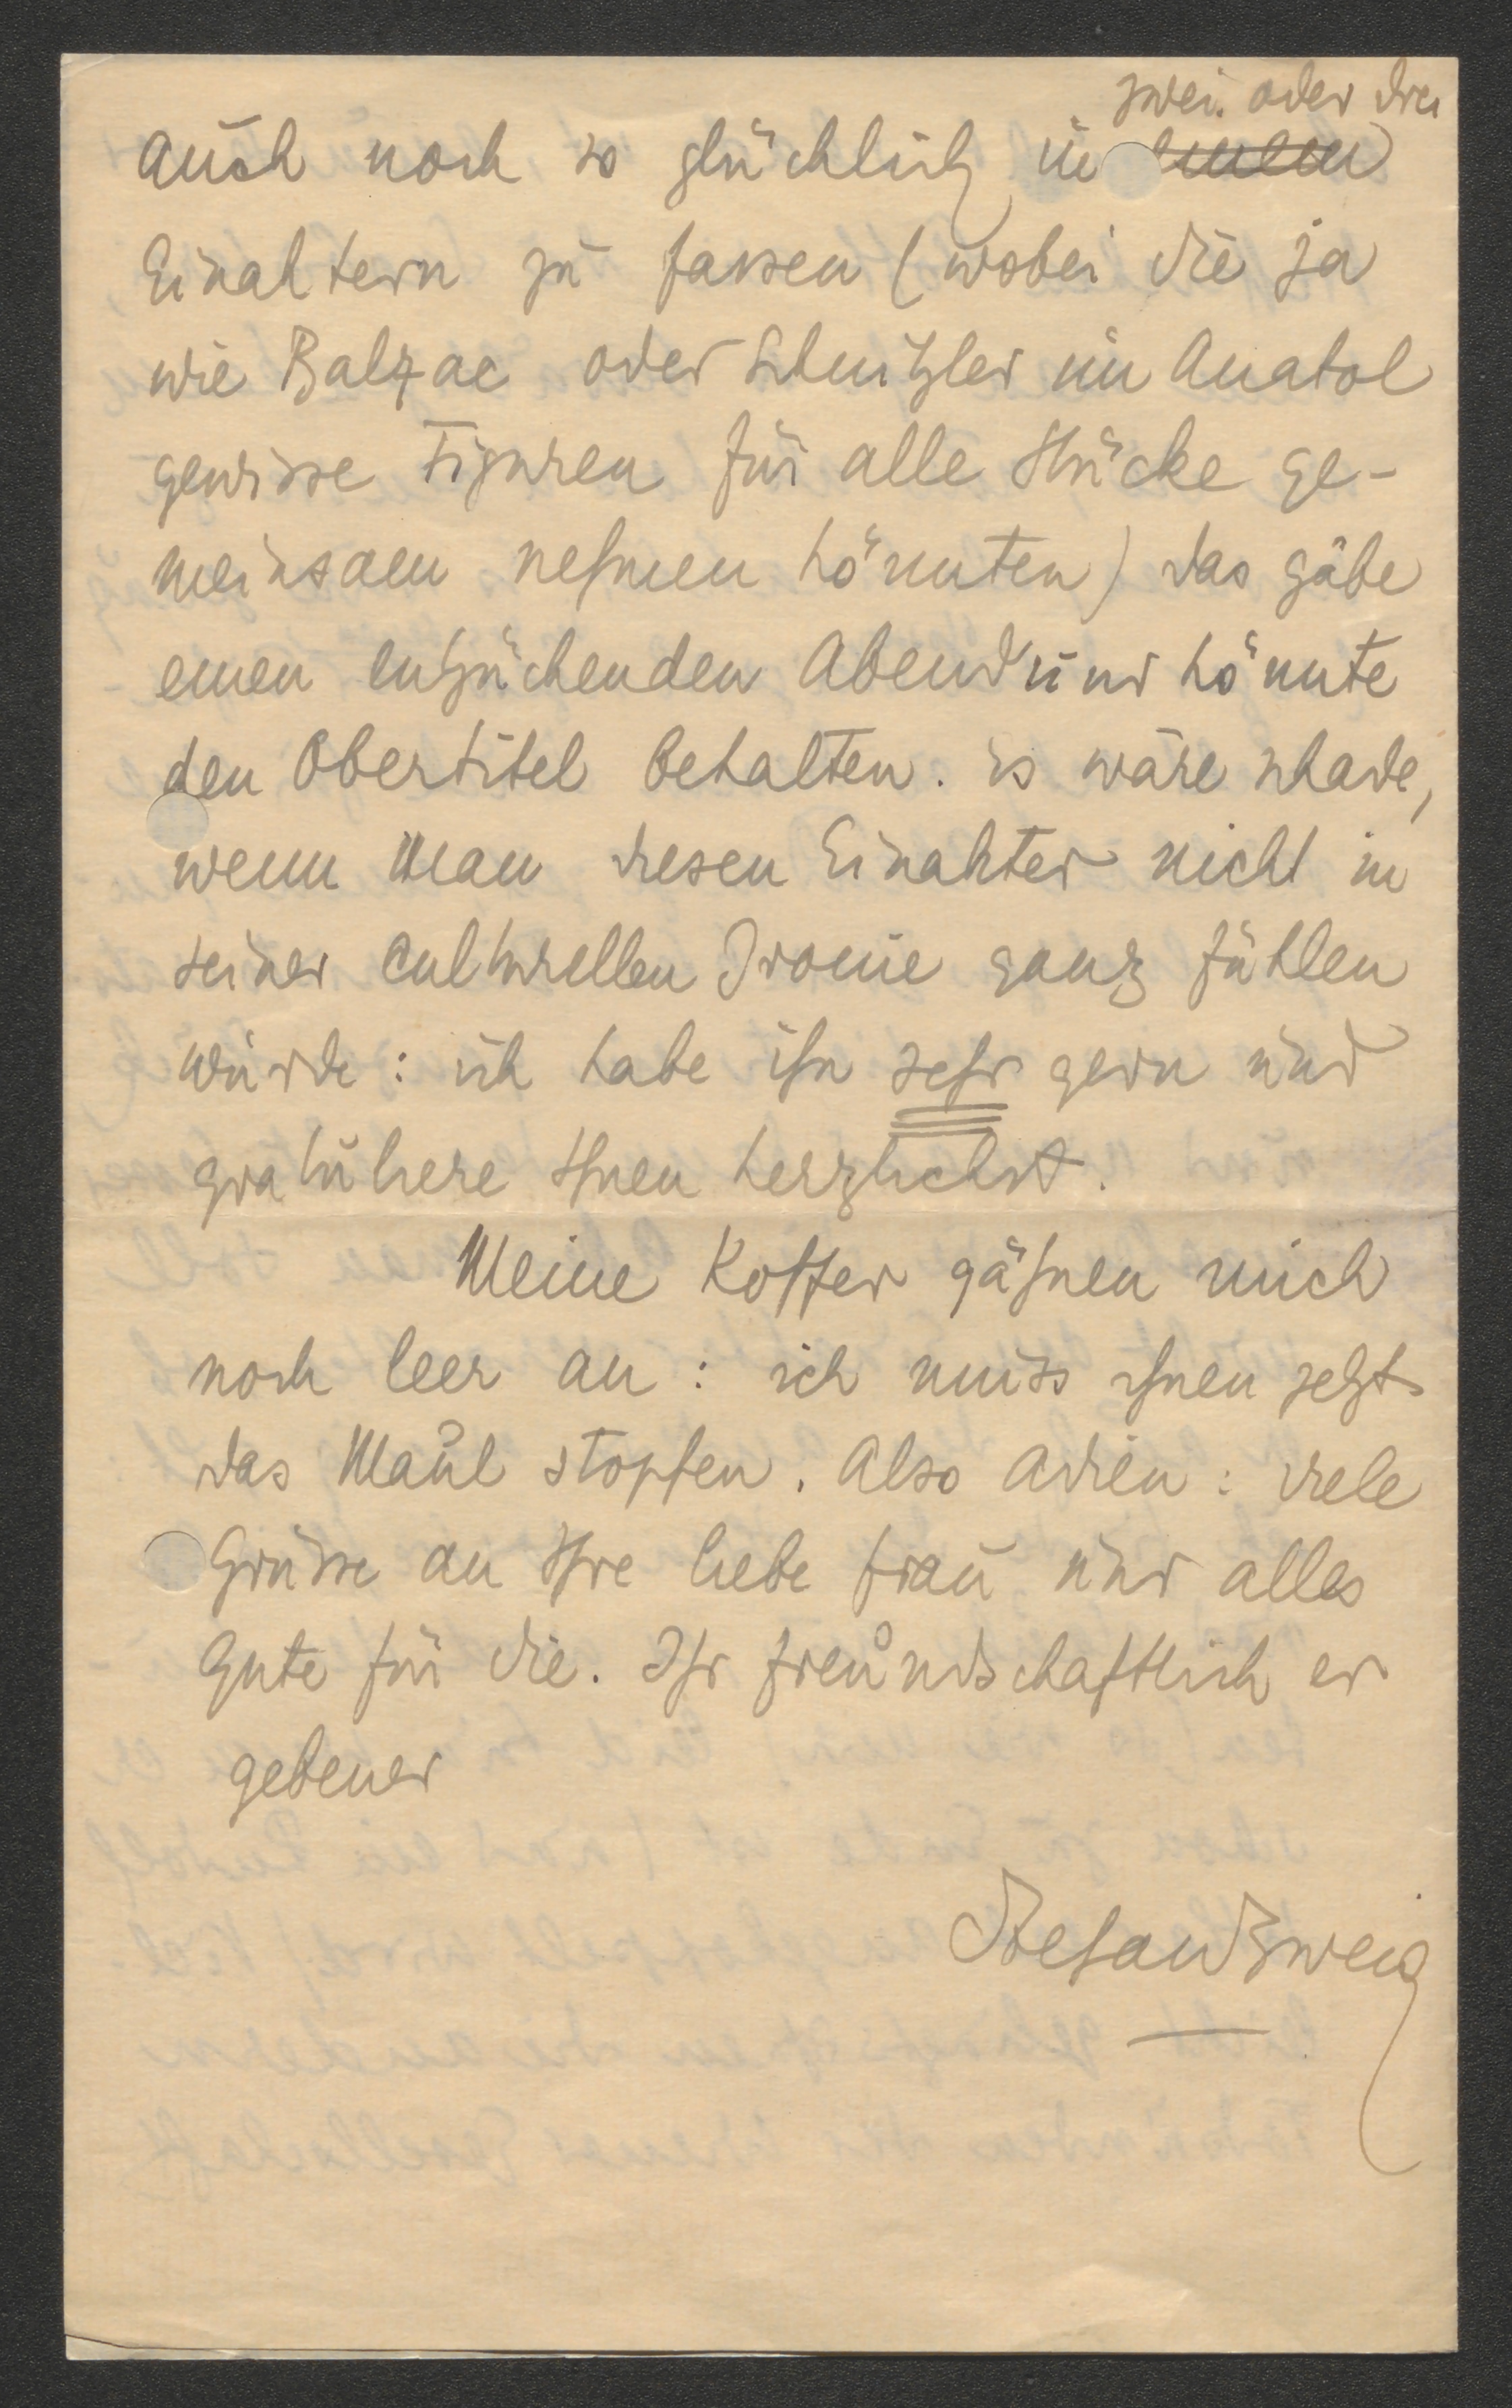 zwei oder drei
auch noch so glücklich in einem
Einaktern zu fassen (wobei Sie ja
wie Balzac oder Schnitzler im Anatol
gewisse Figuren für alle Stücke ge-
meinsam nehmen könnten) das gäbe
einen entzückenden Abend und könnte
den Obertitel behalten. Es wäre schade,
wenn man diesen Einakter nicht in
seiner culturellen Ironie ganz fühlen
würde: ich habe ihn sehr gern und
gratuliere Ihnen herzlichst.
Meine Koffer gähnen mich
noch leer an: ich muss ihnen jetzt
das Maul stopfen. Also Adieu: viele
Grüsse an Ihre liebe Frau und alles
Gute für Sie. Ihr freundschaftlich er
gebener
Stefan Zweig